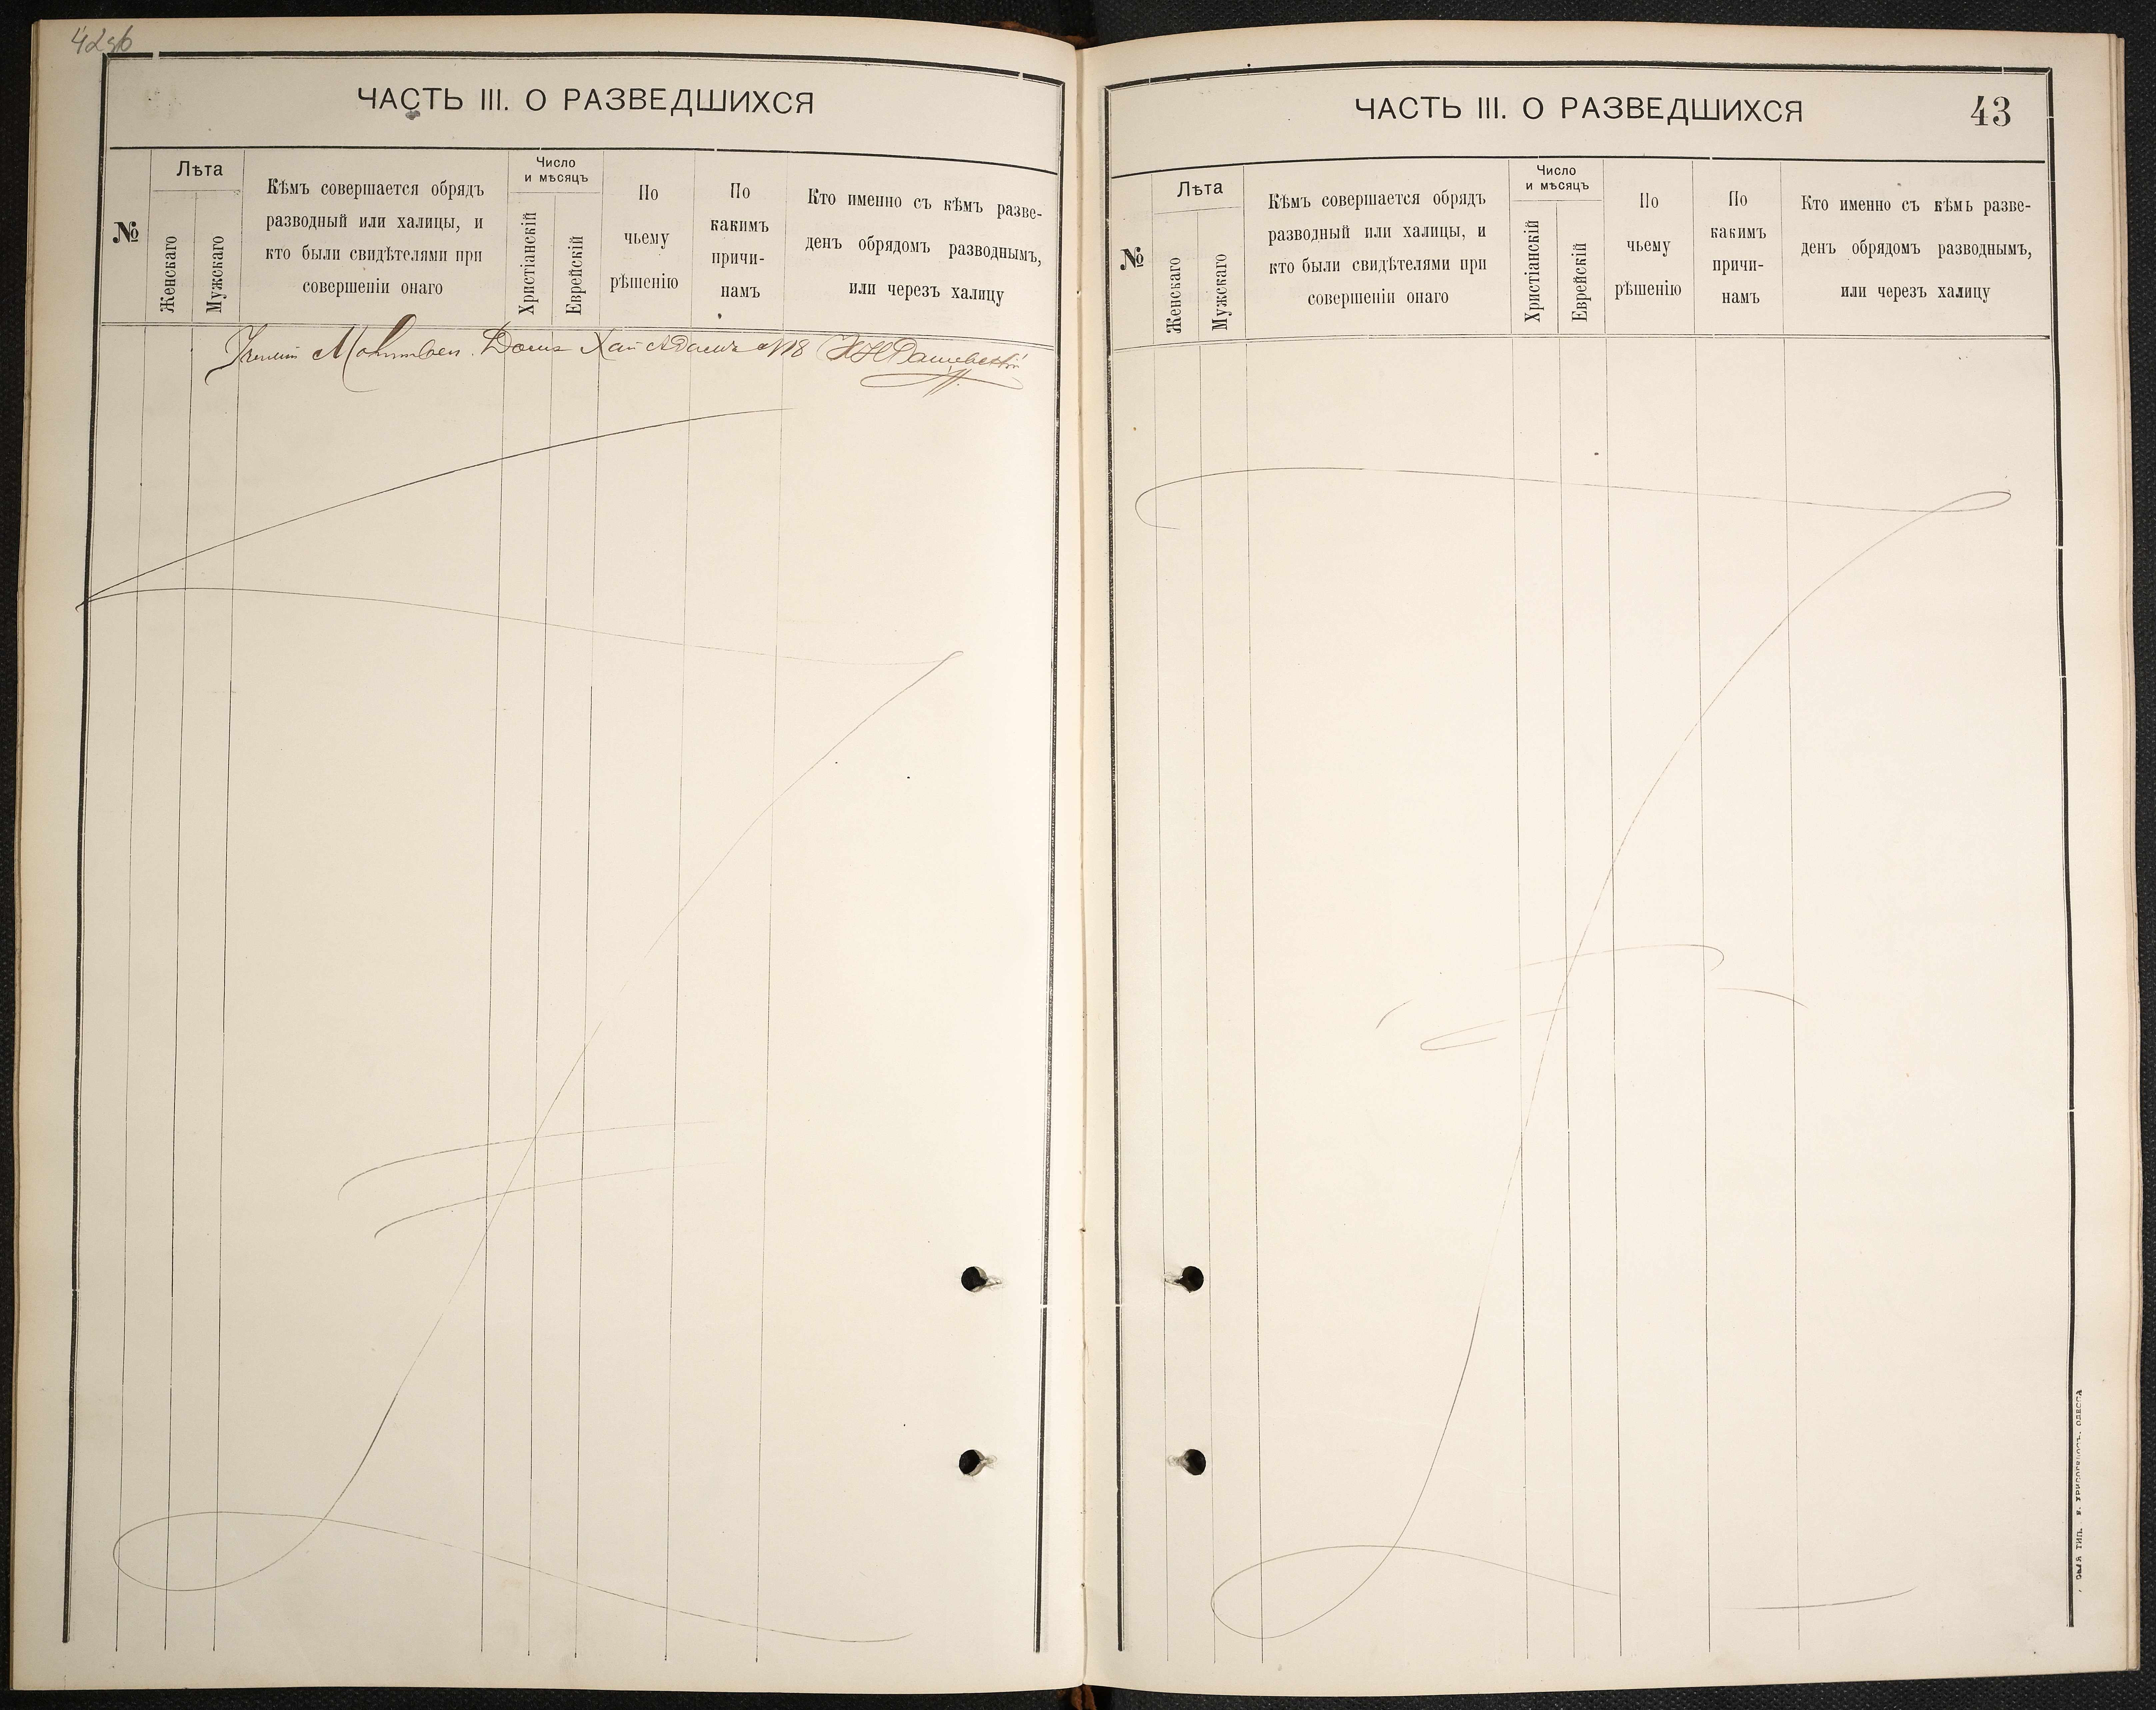 42об
ЧАСТЬ III. О РАЗВЕДШИХСЯ
№
Лѣта
Женскаго
Мужскаго
Кѣмъ совершается обрядъ
разводный или халицы, и
кто были свидѣтелями при
совершеніи онаго
Число
и мѣсяцъ
Христіанскій
Еврейскій
По
чьему
рѣшенію
По
какимъ
причи-
намъ
Кто именно съ кѣмъ разве-
денъ обрядомъ разводнымъ,
или черезъ халицу
ЧАСТЬ III. О РАЗВЕДШИХСЯ
43
№
Лѣта
Женскаго
Мужскаго
Кѣмъ совершается обрядъ
разводный или халицы, и
кто были свидѣтелями при
совершеніи онаго
Число
и мѣсяцъ
Христіанскій
Еврейскій
По
чьему
рѣшенію
По
какимъ
причи-
намъ
Кто именно съ кѣмъ разве-
денъ обрядомъ разводнымъ,
или черезъ халицу
ТИП. ОДЕССА